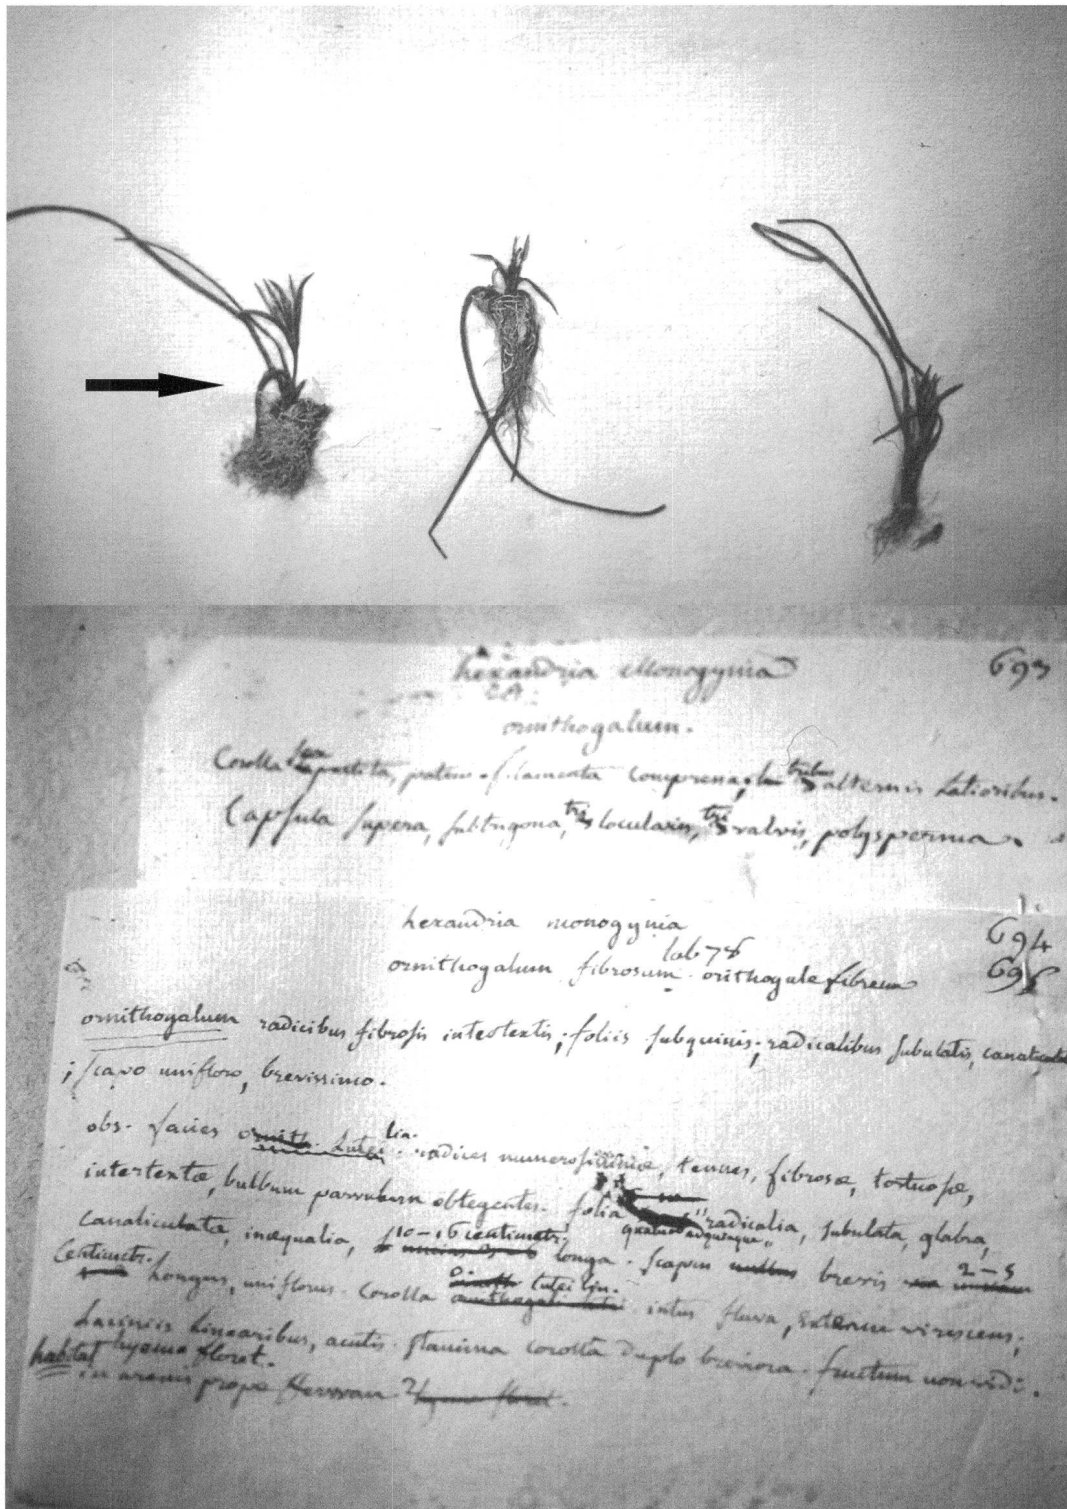 hexandria Monogynia 693
ornithogalum.
Corolla sexpartita, patens. filamenta compressa, tribus alternis latioribus.
Capsula supera, subtrigona, trilocularis, trivalvis, polysperma.
hexandria monogynia 694
ornithogalum fibrosum tab 78 orithogale fibreux 695
ornithogalum radicibus fibrosis intertextis; foliis subquinis; radicalibus subulatis,
; scapo unifloro, brevissimo.
obs. facies lin. radices numerosissimæ, tenues, fibrosæ, tortuosæ,
intertextæ, bulbum parvulum obtegentes. folia radicalia, subulata, glabra,
canaliculata, inæqualia, 10-16 centimetr. longa. scapus nullus brevis 2-5
Centimetr. longus, uniflorus. Corolla o. lutei lin. ornithogali lutei intus flava, externe virescens;
laciniis linearibus, acutis. stamina corolla duplo breviora. fructum non vidi.
habitat hyeme floret.
in arenis prope hyeme floret.